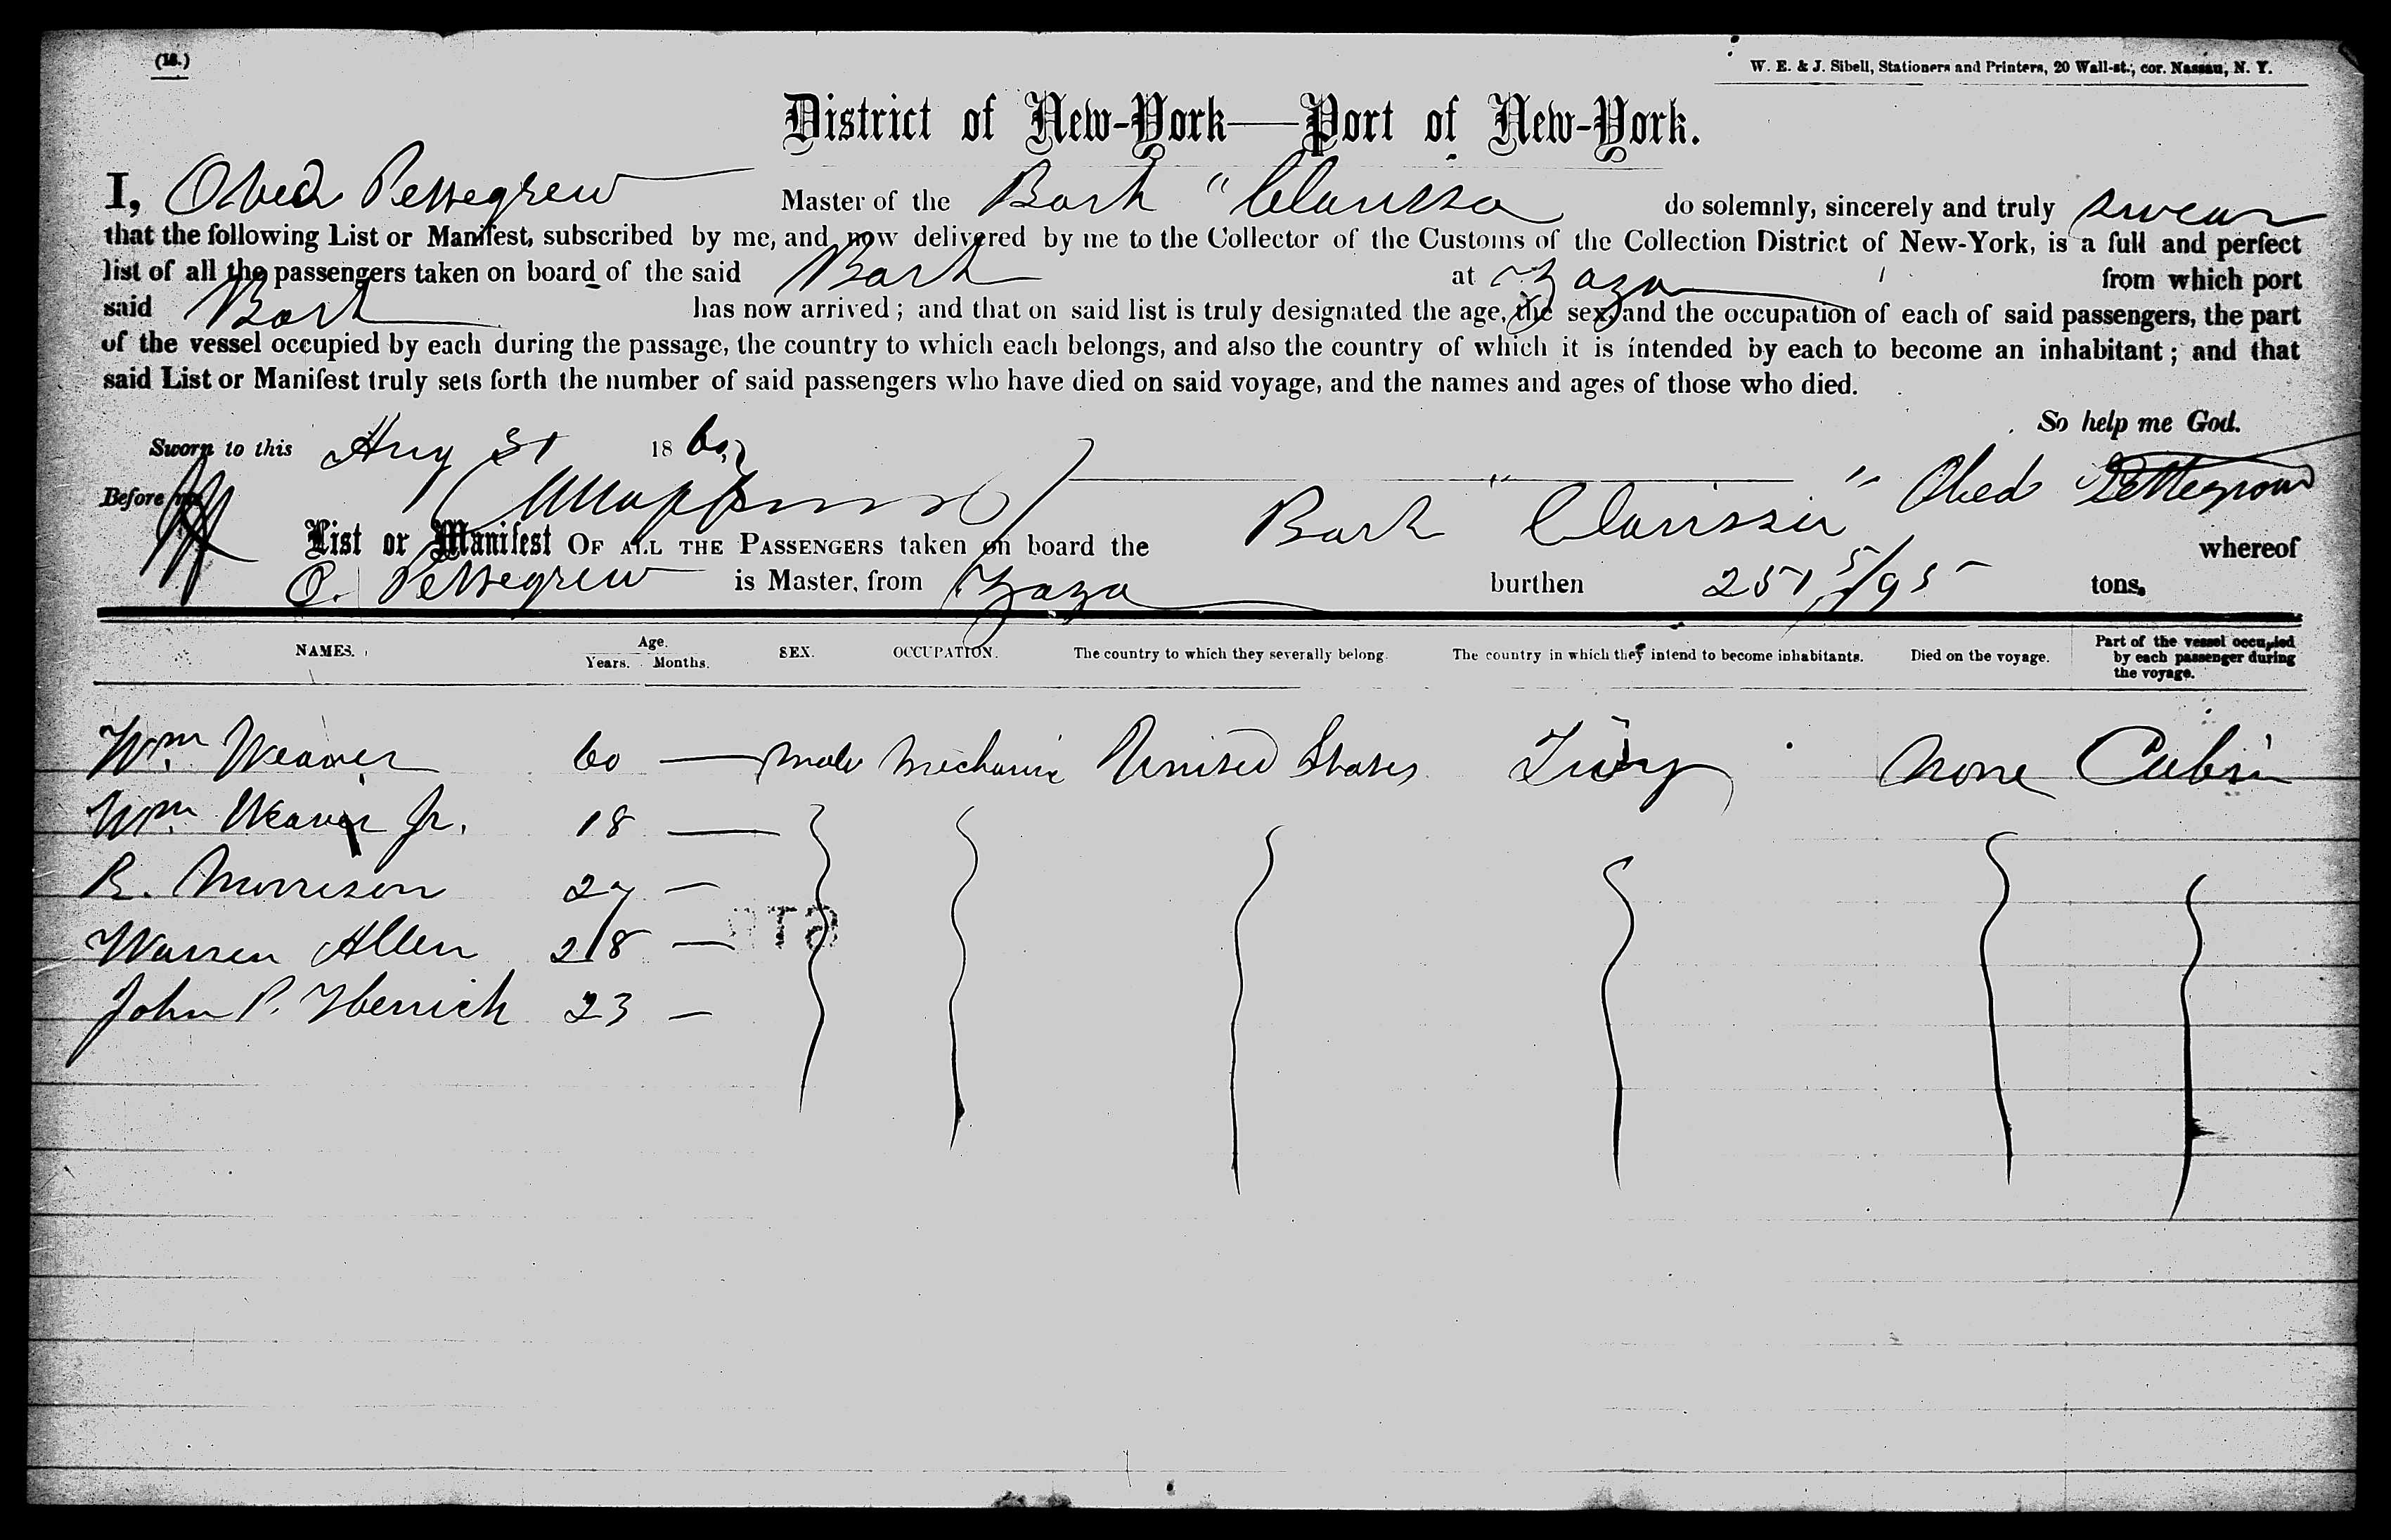 (18.)
W. E. & J. Sibell, Stationers and Printers, 20 Wall-st., cor. Nassau, N. Y.
District of New-York—Port of New-York.
I, Obed Pettegrew Master of the Bark "Clarissa do solemnly, sincerely and truly swear
that the following List or Manifest, subscribed by me, and now delivered by me to the Collector of the Customs of the Collection District of New-York, is a full and perfect
list of all the passengers taken on board of the said Bark at Zaza from which port
said Bark has now arrived; and that on said list is truly designated the age, the sex, and the occupation of each of said passengers, the part
of the vessel occupied by each during the passage, the country to which each belongs, and also the country of which it is intended by each to become an inhabitant; and that
said List or Manifest truly sets forth the number of said passengers who have died on said voyage, and the names and ages of those who died.
So help me God.
Sworn to this Aug 31 1860
Before me Obed Pettegrow
List or Manifest OF ALL THE PASSENGERS taken on board the Bark "Clarissa" whereof
O. Pettegrew is Master, from Zaza burthen 251 5/95 tons.
NAMES. Age. Years. Months. SEX. OCCUPATION. The country to which they severally belong. The country in which they intend to become inhabitants. Died on the voyage. Part of the vessel occupied by each passenger during the voyage.
Wm. Weaver 60 — Male Mechanic United States None Cabin
Wm. Weaver Jr. 18 —
R. Morrison 27 —
Warren Allen 28 —
John P. Herrick 23 —